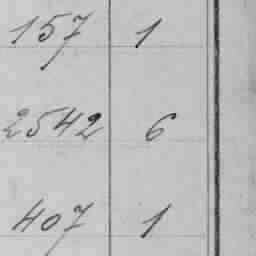 157 1
2542 6
407 1